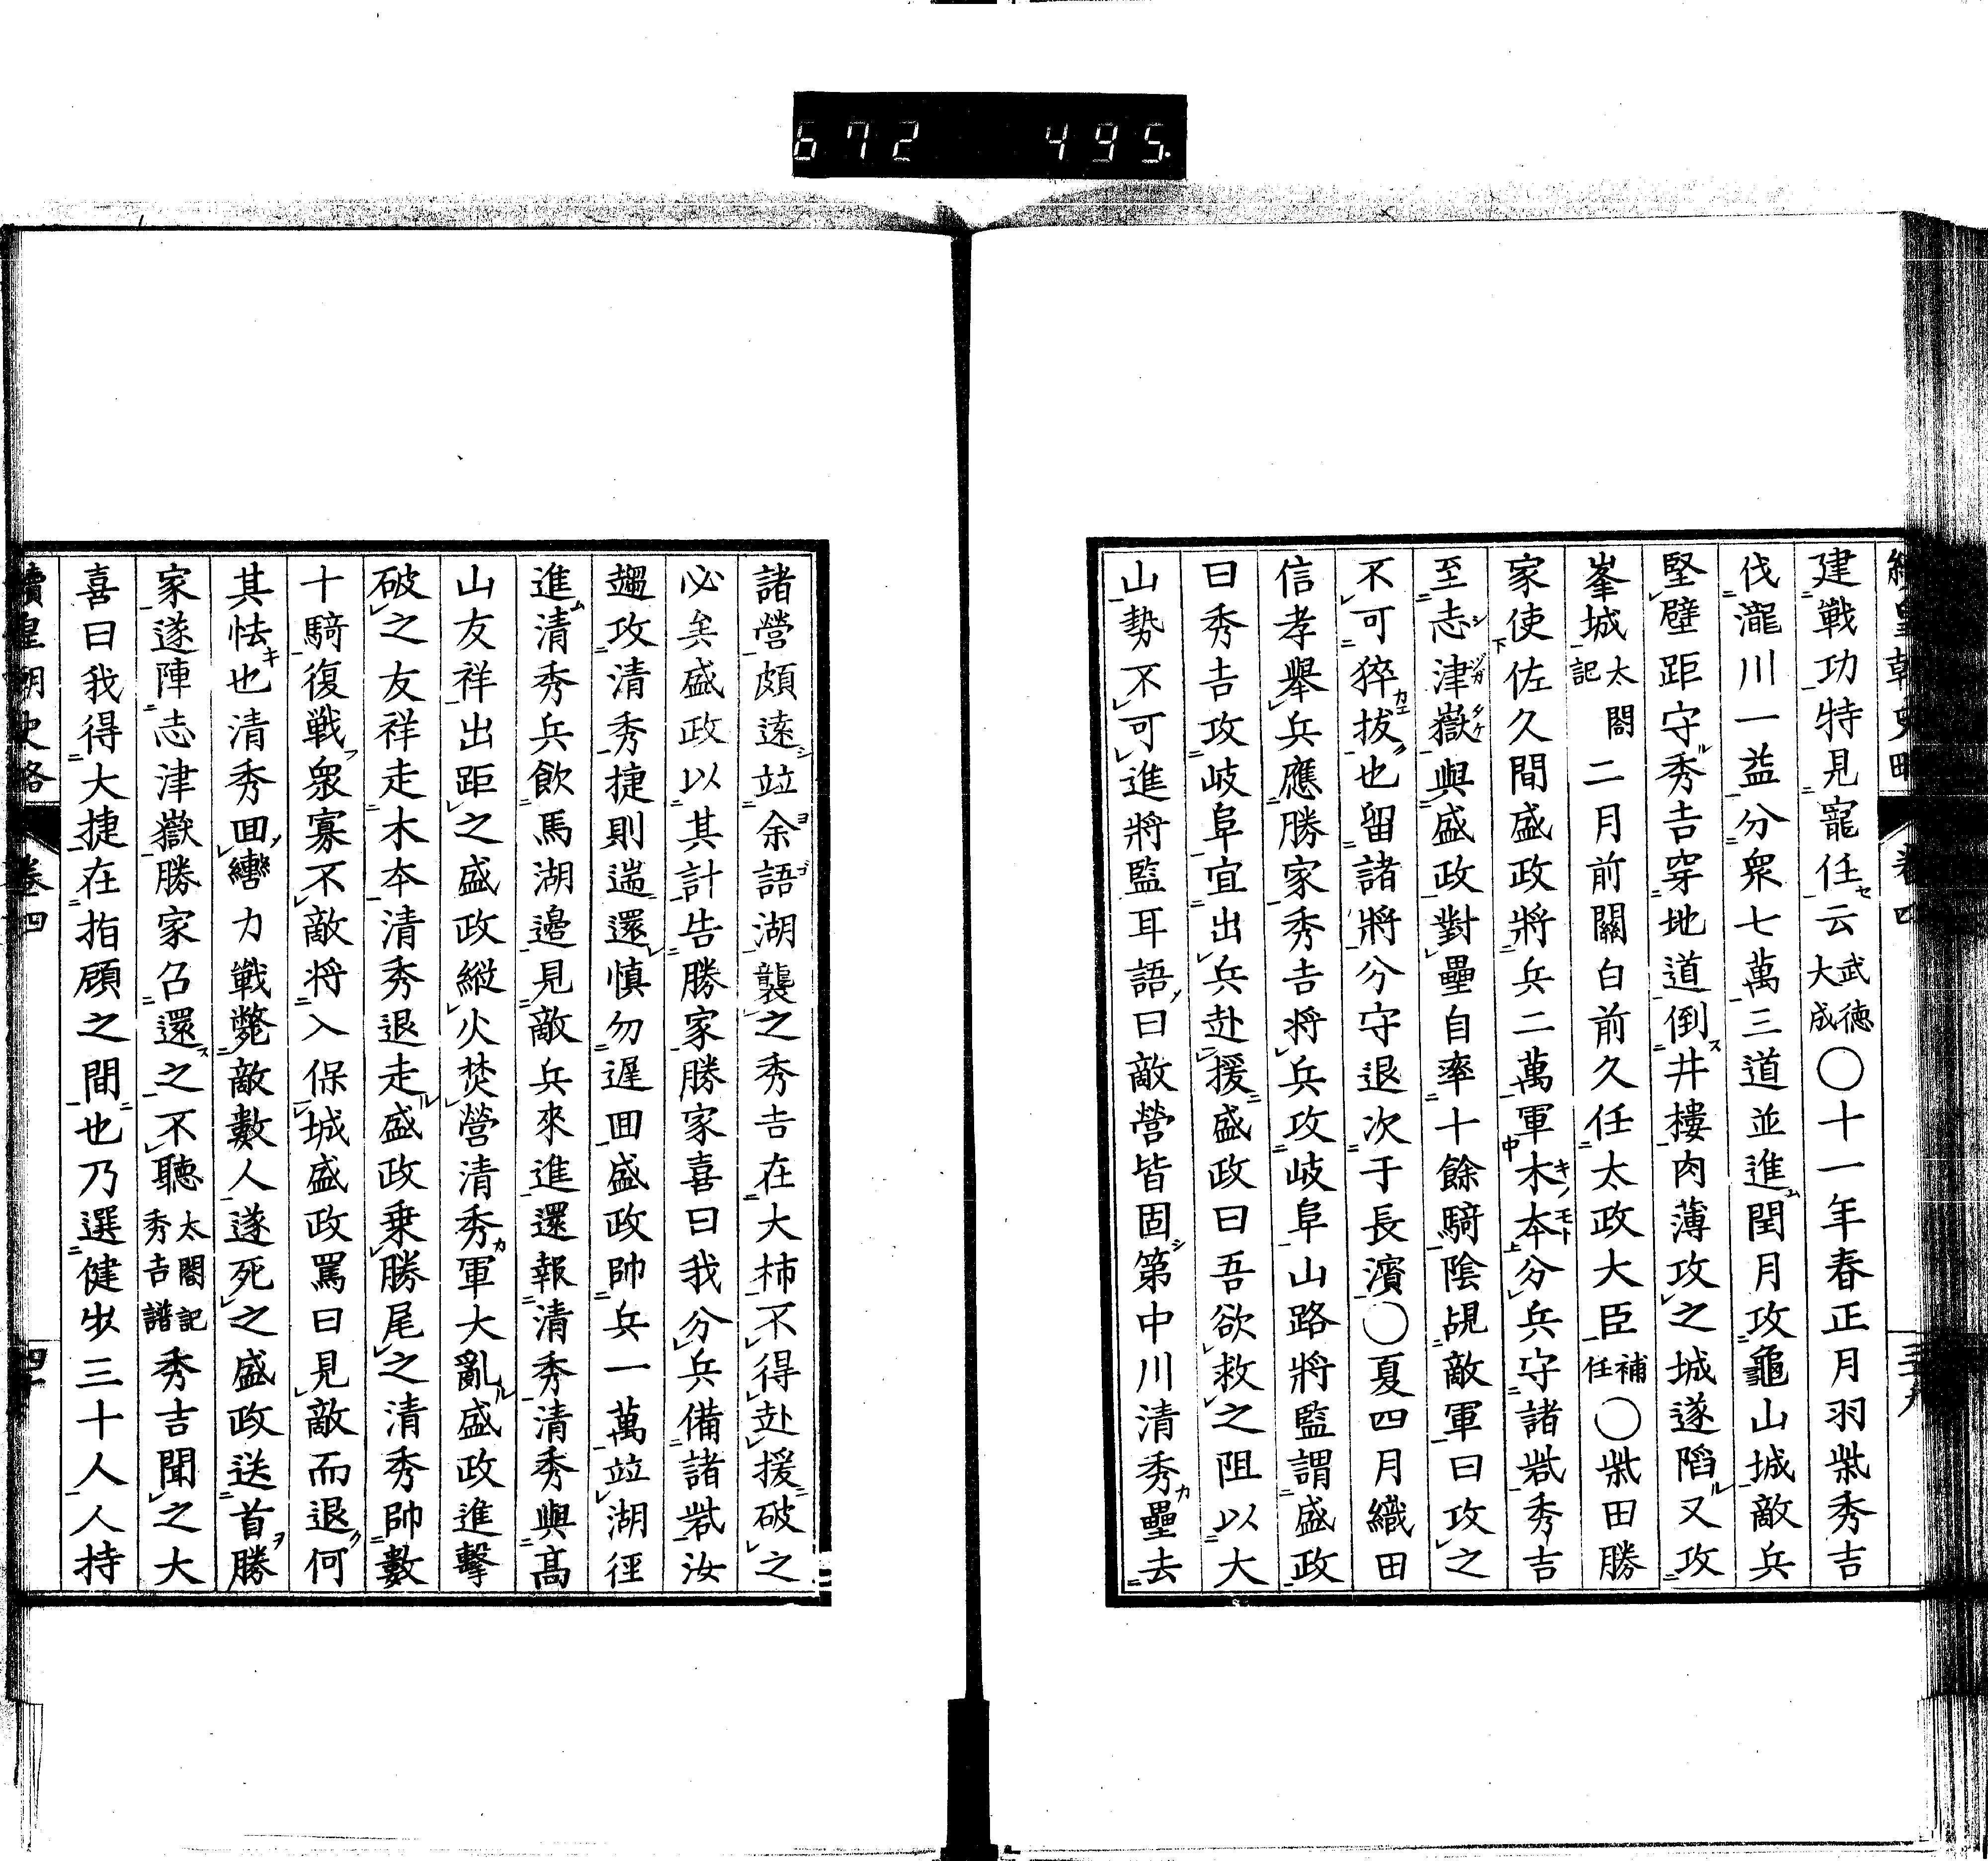 672 495.
續皇朝史略 卷四 三十九
建戰功特見寵任云武德大成〇十一年春正月羽柴秀吉
伐瀧川一益分衆七萬三道並進閏月攻龜山城敵兵
堅壁距守秀吉穿地道倒井樓肉薄攻之城遂陷又攻
峯城太閤記二月前關白前久任太政大臣補任〇柴田勝
家使佐久間盛政將兵二萬軍木本分兵守諸砦秀吉
至志津嶽與盛政對壘自率十餘騎陰覘敵軍曰攻之
不可猝拔也留諸將分守退次于長濱〇夏四月織田
信孝擧兵應勝家秀吉將兵攻岐阜山路將監謂盛政
曰秀吉攻岐阜宜出兵赴援盛政曰吾欲救之阻以大
山勢不可進將監耳語曰敵營皆固第中川清秀壘去
諸營頗遠竝余語湖襲之秀吉在大柿不得赴援破之
必矣盛政以其計告勝家勝家喜曰我分兵備諸砦汝
趨攻清秀捷則遄還愼勿遲囬盛政帥兵一萬竝湖徑
進清秀兵飲馬湖邊見敵兵來進還報清秀清秀與髙
山友祥出距之盛政縱火焚營清秀軍大亂盛政進擊
破之友祥走木本清秀退走盛政乗勝尾之清秀帥數
十騎復戰衆寡不敵将入保城盛政罵曰見敵而退何
其怯也清秀囬轡力戰斃敵數人遂死之盛政送首勝
家遂陣志津嶽勝家召還之不聽太閤記秀吉譜秀吉聞之大
喜曰我得大捷在指顧之間也乃選健步三十人人持
續皇朝史略 卷四 四十